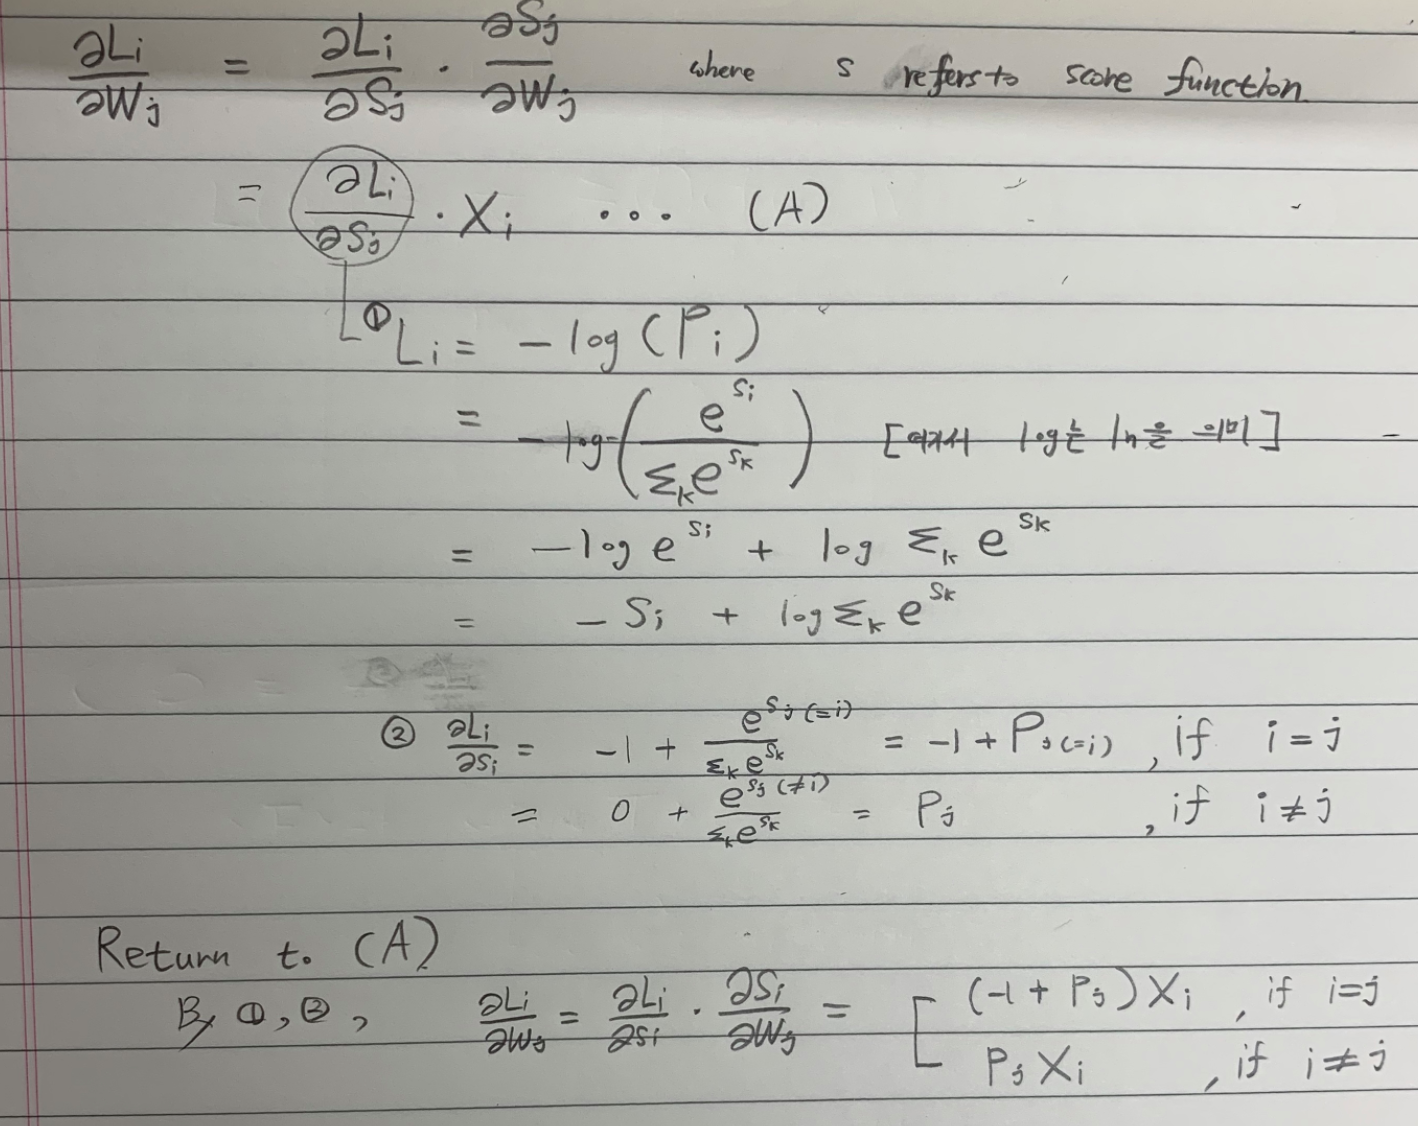 ∂Li/∂Wj = ∂Li/∂Sj · ∂Sj/∂Wj where s refers to score function
= ∂Li/∂Sj · Xi ... (A)
① Li = -log(Pi)
= -log(e^Si / Σk e^Sk) [여기서 log는 ln을 의미]
= -log e^Si + log Σk e^Sk
= -Si + log Σk e^Sk
② ∂Li/∂Si = -1 + e^Sj(=i) / Σk e^Sk = -1 + Pj(=i) , if i=j
= 0 + e^Sj(≠i) / Σk e^Sk = Pj , if i≠j
Return to (A)
By ①, ②, ∂Li/∂Wj = ∂Li/∂Si · ∂Si/∂Wj = [ (-1 + Pj)Xi , if i=j
Pj Xi , if i≠j